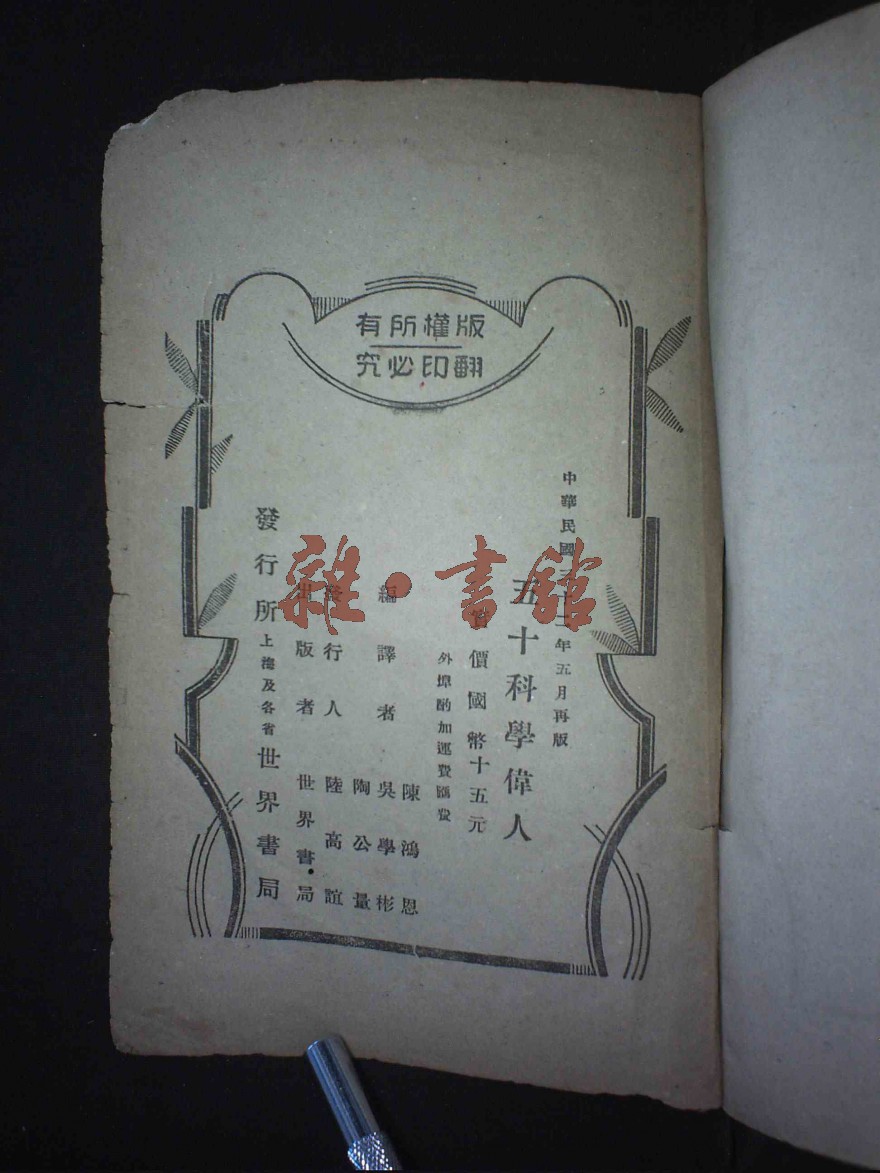 版權所有
翻印必究
中華民國三十二年五月再版
五十科學偉人
實價國幣十五元
外埠酌加運費匯費
編譯者 陳鴻恩 吳學彬 陶公量
發行人 陸高誼
出版者 世界書局
發行所 上海及各省 世界書局
雜·書館